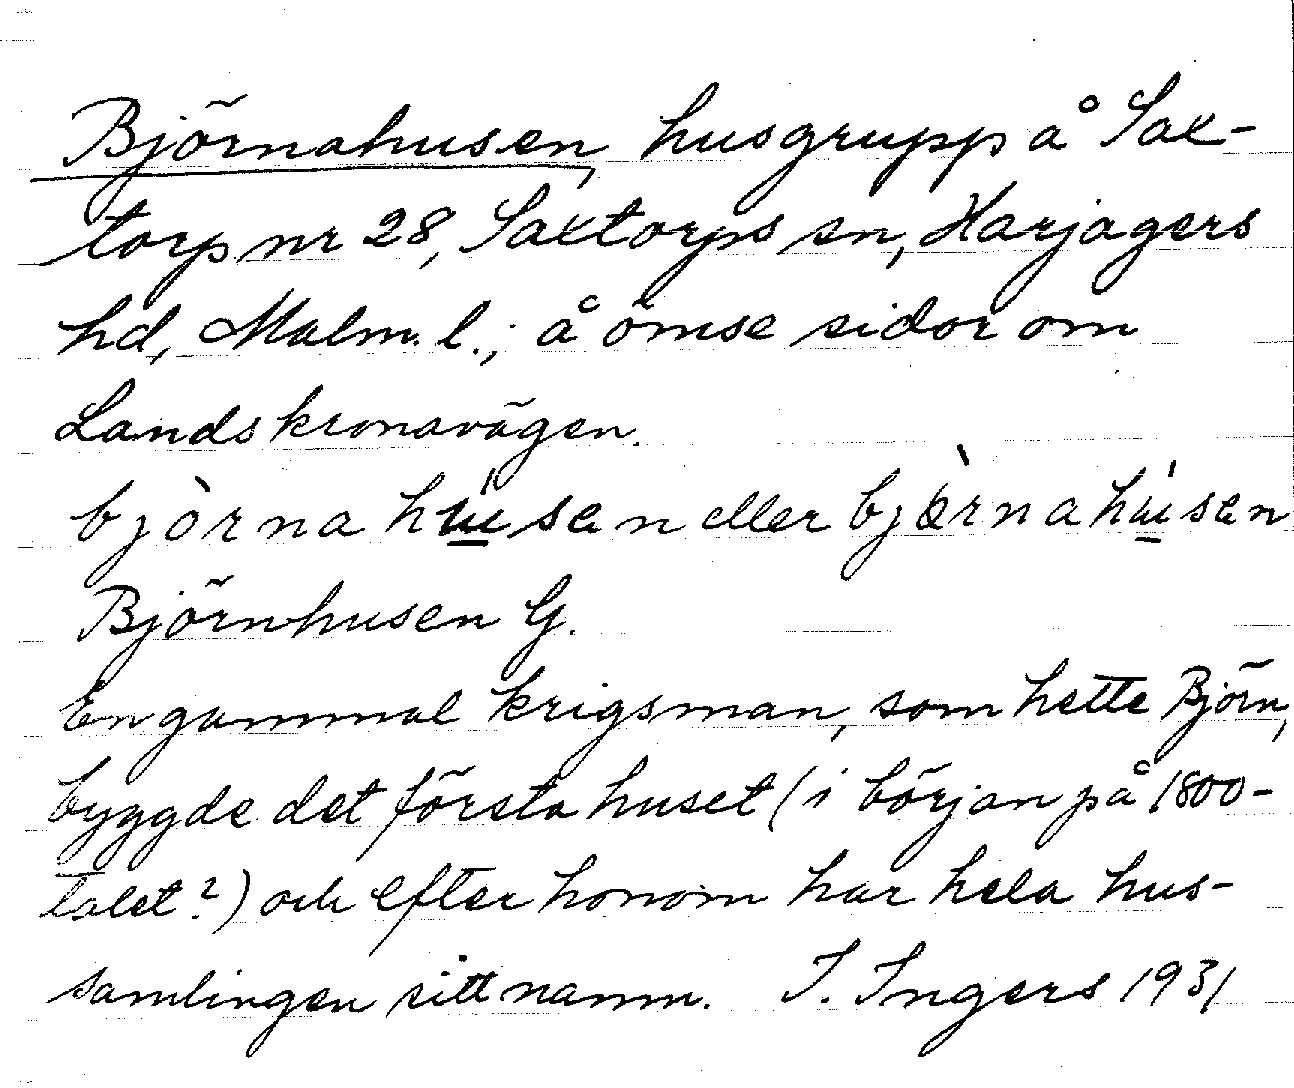 Björnahusen, husgrupp å Sax-
torp nr 28, Saxtorps sn, Harjagers
hd, Malm. l.; å ömse sidor om
Landskronavägen.
bjòrna húsen eller bjòrnahúsen
Björnhusen G.
En gammal krigsman, som hette Björn,
byggde det första huset (i början på 1800-
talet?) och efter honom har hela hus-
samlingen sitt namn. I. Ingers 1931